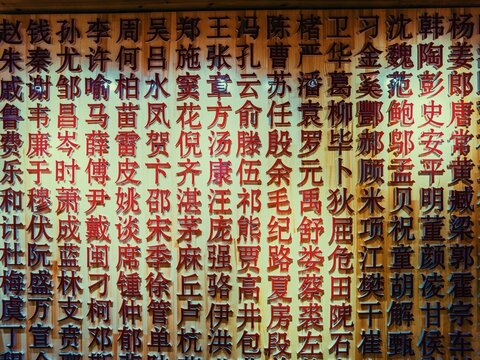 赵钱孙李周吴郑王冯陈褚卫习沈韩杨
朱秦尤许何吕施张孔曹严华金魏陶姜
戚谢邹喻柏水窦章云苏潘葛奚范彭郎
鲁韦昌马苗凤花方俞任袁柳酆鲍史唐
费廉岑薛雷贺倪汤滕殷罗毕郝邬安常
乐于时傅皮卞齐康伍余元卜顾孟平黄
和穆萧尹姚邵湛汪祁毛禹狄米贝明臧
计伏成戴谈宋茅庞熊纪舒屈项祝董梁
杜阮蓝闵席季麻强贾路娄危江童颜郭
梅盛林刁锺徐丘骆高夏蔡田樊胡凌霍
虞万支柯仲管卢伊井房裘干解甘宗
丁宣贲邓郁单杭洪包段左石崔甄侯车